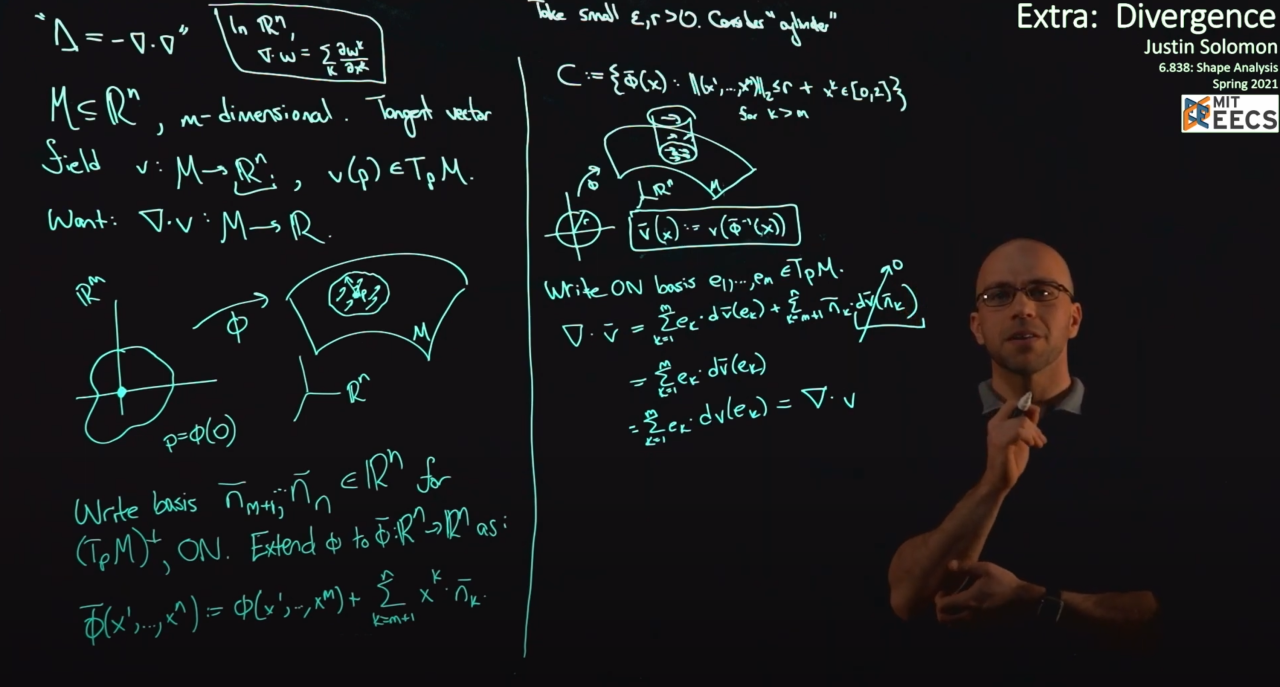 "Δ = -∇·∇"
In ℝⁿ,
∇·w = Σ_k ∂w^k/∂x^k
M ⊆ ℝⁿ, m-dimensional. Tangent vector
field v: M → ℝⁿ, v(p) ∈ T_pM.
Want: ∇·v : M → ℝ.
ℝᵐ
ϕ
p
M
ℝⁿ
p=ϕ(0)
Write basis n̄_{m+1},...,n̄_n ∈ ℝⁿ for
(T_pM)^⊥, ON. Extend ϕ to ϕ̄:ℝⁿ→ℝⁿ as:
ϕ̄(x¹,...,xⁿ) := ϕ(x¹,..,xᵐ) + Σ_{k=m+1}^n x^k · n̄_k.
Take small ε,r >0. Consider "cylinder"
C := {ϕ̄(x) : ‖(x¹,...,xᵐ)‖₂ ≤ r + x^k ∈ [0,ε]}
for k > m
ϕ
r
ℝⁿ
M
v̄(x) := v(ϕ̄⁻¹(x))
Write ON basis e₁,...,e_m ∈ T_pM.
∇·v̄ = Σ_{k=1}^m e_k · dv̄(e_k) + Σ_{k=m+1}^n n̄_k · dv̄(n̄_k)
0
= Σ_{k=1}^m e_k · dv̄(e_k)
= Σ_{k=1}^m e_k · dv(e_k) = ∇·v
Extra: Divergence
Justin Solomon
6.838: Shape Analysis
Spring 2021
MIT
EECS